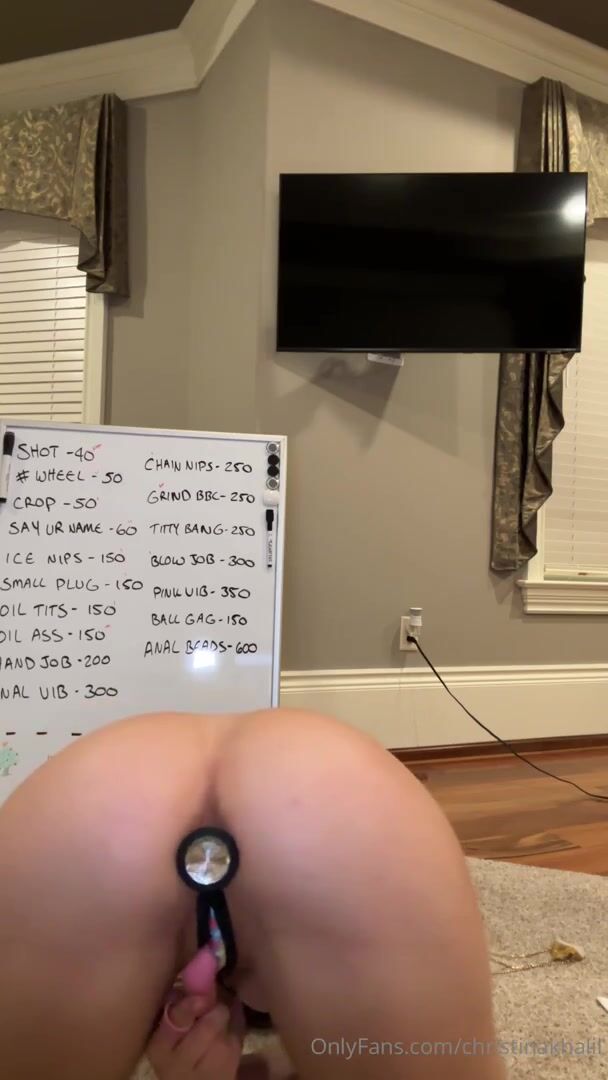 SHOT -40
# WHEEL - 50
CROP - 50
SAY UR NAME - 60
ICE NIPS - 150
SMALL PLUG - 150
OIL TITS - 150
OIL ASS - 150
HAND JOB - 200
NAL VIB - 300
CHAIN NIPS - 250
GRIND BBC - 250
TITTY BANG - 250
BLOW JOB - 300
PINK VIB - 350
BALL GAG - 150
ANAL BEADS - 600
OnlyFans.com/christinakhalil